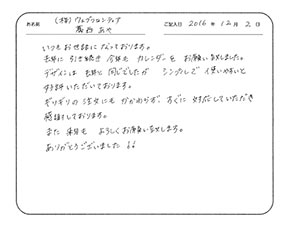 お名前 (株)ウェブリコンティブ 葛西 あや ご記入日 2016年12月2日
いつもお世話になっております。
去年に引き続き今年もカレンダーをお願い致しました。
デザインは去年と同じでしたがシンプルで使いやすいと
好評いただいております。
ギリギリの注文にもかかわらず、すぐに対応していただき
感謝しております。
また来年もよろしくお願い致します。
ありがとうございました